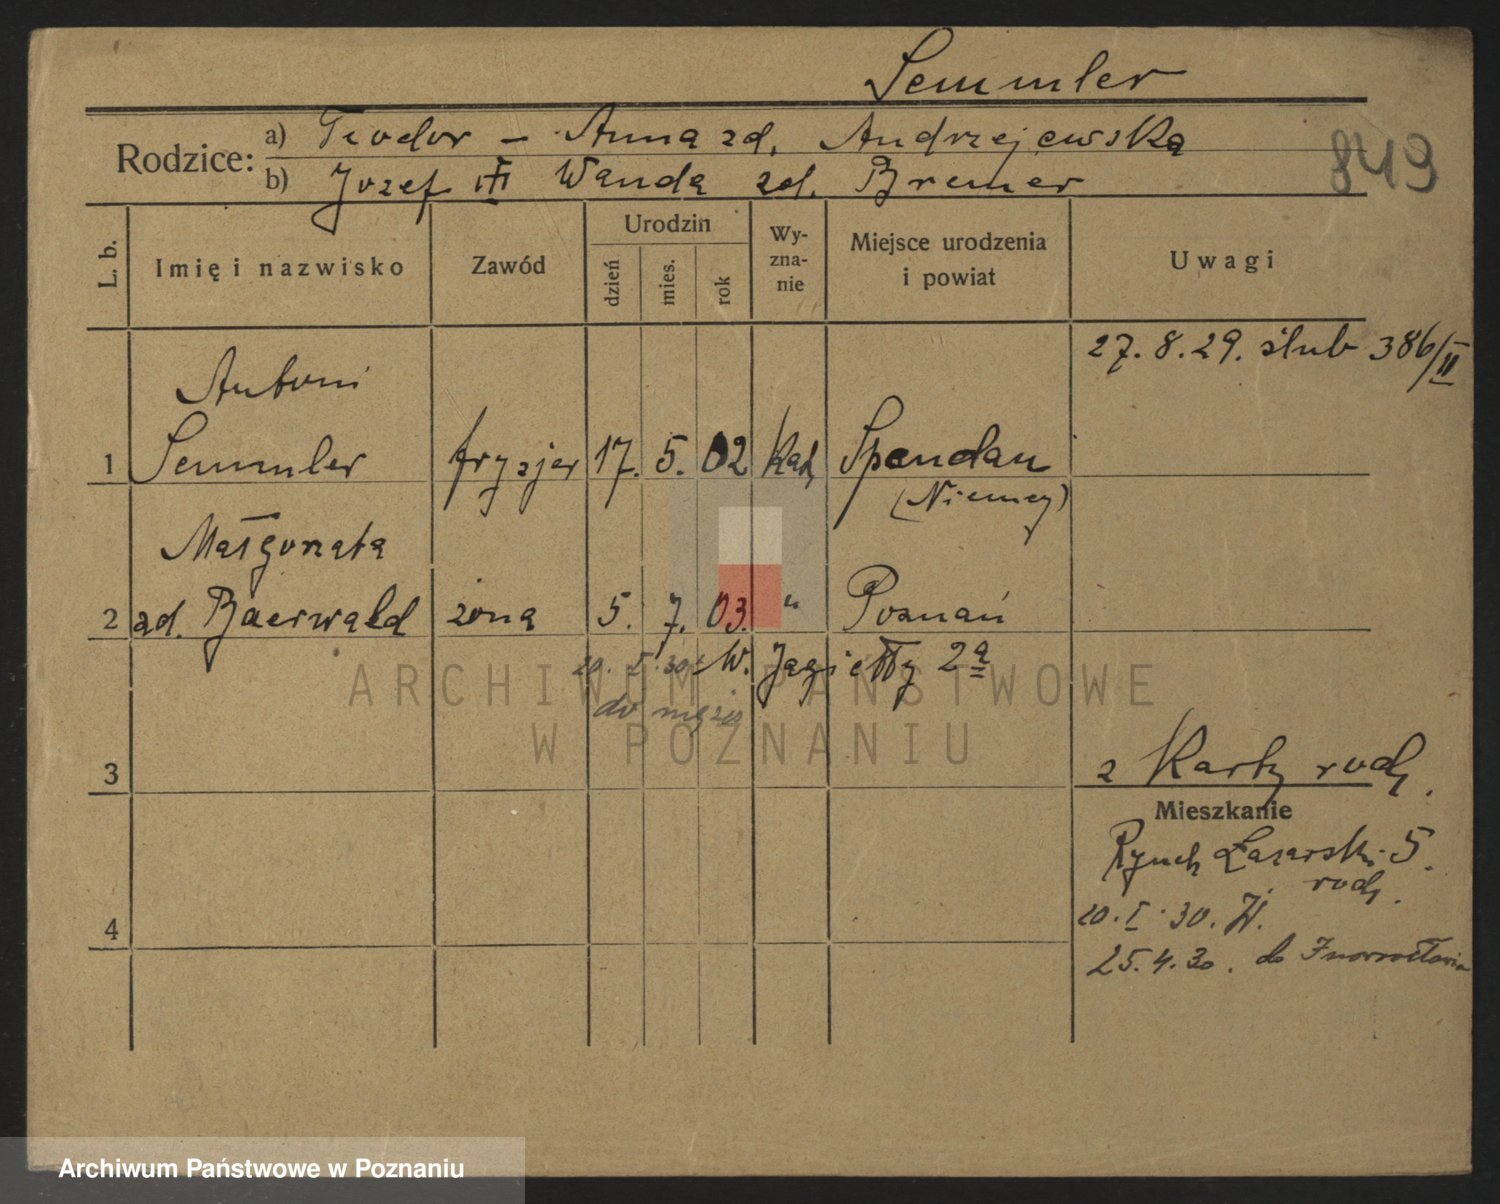 Semmler
849
Rodzice: a) Teodor – Anna zd. Andrzejewska
b) Jozef i Wanda zd. Bremer
L. b.
Imię i nazwisko
Zawód
Urodzin
dzień
mies.
rok
Wy-
zna-
nie
Miejsce urodzenia
i powiat
Uwagi
27. 8. 29. ślub 386/II
Antoni
1 Semmler fryzjer 17. 5. 02 kat. Spandau
(Niemcy)
Małgorzata
2 zd. Baerwald żona 5. 7. 03. " Poznań
20. 5. 30 W. Jagiełły 2a
do męża
z Karty rodz.
3
Mieszkanie
Rynek Łazarski 5.
rodz.
20. I. 30. W.
4
25. 4. 30. do Inowrocławia
ARCHIWUM PAŃSTWOWE
W POZNANIU
Archiwum Państwowe w Poznaniu